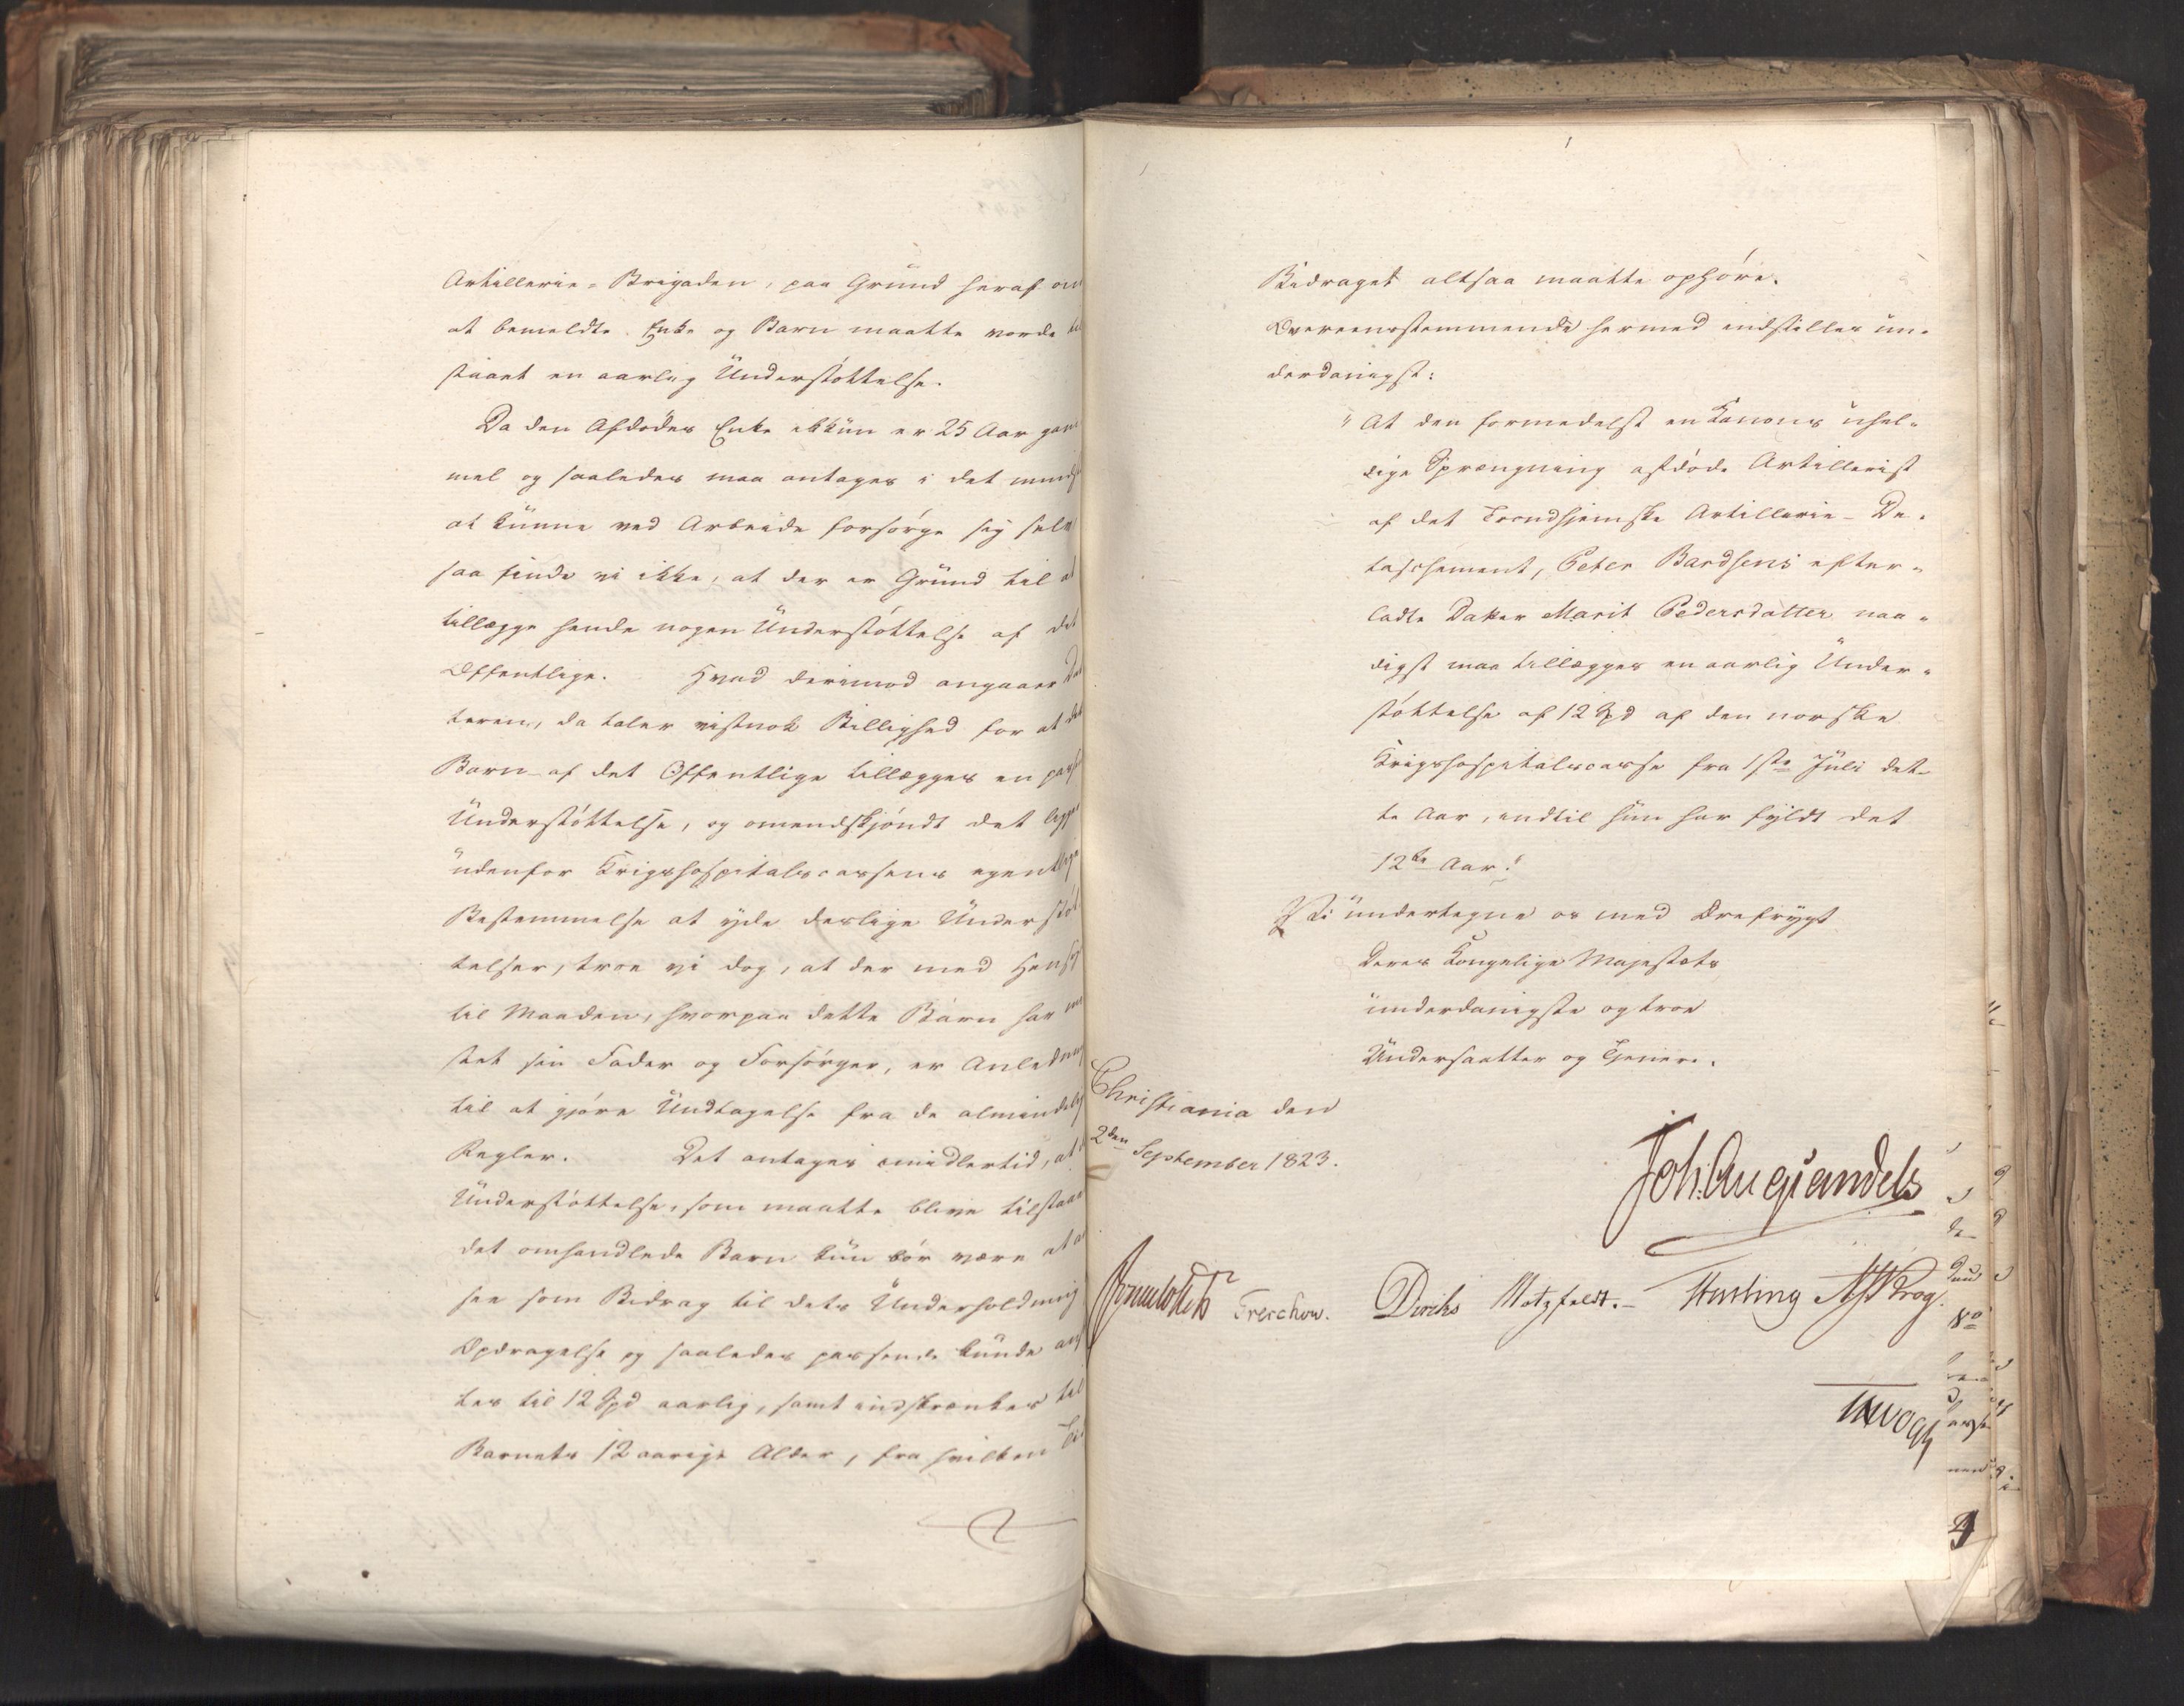 Artillerie-Brigaden, paa Grund heraf om
at bemeldte Enke og Barn maatte vorde til
staaet en aarlig Understøttelse.
Da den Afdødes Enke ikkun er 25 Aar gam
mel og saaledes maa antages i det mindste
at kunne ved Arbeide forsørge sig selv
saa finde vi ikke, at der er Grund til at
tillægge hende nogen Understøttelse af det
Offentlige. Hvad derimod angaaer Dat
teren, da taler vistnok Billighed for at det
Barn af det Offentlige tillægges en passende
Understøttelse, og omendskjøndt det ligger
udenfor Krigshospitalscassens egentlige
Bestemmelse at yde deslige Understøt
telser, troe vi dog, at der med Hensyn
til Maaden, hvorpaa dette Barn har mi
stet sin Fader og Forsørger, er Anledning
til at gjøre Undtagelse fra de almindelige
Regler. Det antages imidlertid, at
Understøttelse, som maatte blive tilstaaet
det omhandlede Barn kun bør være at an
see som Bidrag til dets Underholdning
Opdragelse og saaledes passende kunde an
tes til 12 Spd aarlig, samt indskrænkes til
Barnets 12 aarige Alder, fra hvilken Tid
Bidraget altsaa maatte ophøre.
Overeensstemmende hermed indstilles un-
derdanigst:
"At den formedelst en Kanons uhel-
dige Sprængning afdøde Artillerist
af det Trondhjemske Artillerie-De-
taschement, Peter Bardsens efter-
ladte Datter Marit Pedersdatter naa-
digst maa tillægges en aarlig Under-
støttelse af 12 Spd af den norske
Krigshospitalscasse fra 1ste Juli det-
te Aar, indtil hun har fyldt det
12te Aar."
Vi undertegne os med Ærefrygt
Deres Kongelige Majestæts
underdanigste og troe
Undersaatter og Tjenere.
Christiania den
2den September 1823.
Joh. Aug. Sandels
Sommerhielm Treschow. Diriks Motzfeldt.- Fasting Krog.